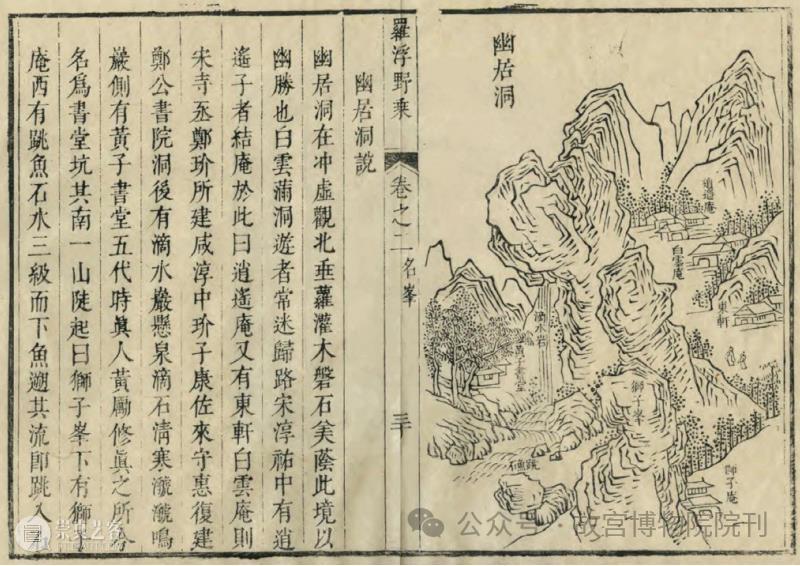 幽居洞
逍遙庵
白雲庵
東軒
滴水岩
黃子書堂
獅子峯
獅子庵
羅浮野乘
卷之二
名峯
三十
幽居洞說
幽居洞在冲虛觀北垂蘿灌木磐石美蔭此境以
幽勝也白雲滿洞遊者常迷歸路宋淳祐中有逍
遙子者結庵於此曰逍遙庵又有東軒白雲庵則
宋寺丞鄭玠所建咸淳中玠子康佐來守惠復建
鄭公書院洞後有滴水巖懸泉滴石清寒鳴
巖側有黃子書堂五代時眞人黃勵修眞之所今
名爲書堂坑其南一山陡起曰獅子峯下有獅
庵西有跳魚石水三級而下魚遡其流即跳入
公众号·故宫博物院院刊